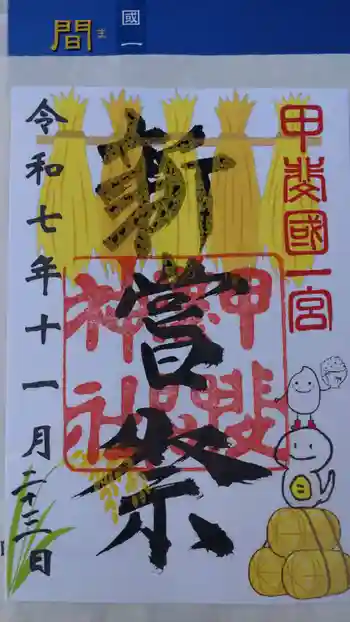 國一
間
ま
甲斐國一宮
新嘗祭
令和七年十一月二十三日
甲斐
神社